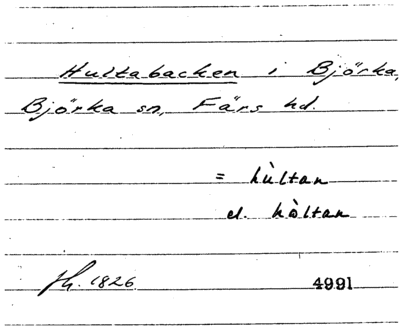 Hultabacken i Björka,
Björka sn, Färs hd.
= hùltan
el. hòltan
1826 4991